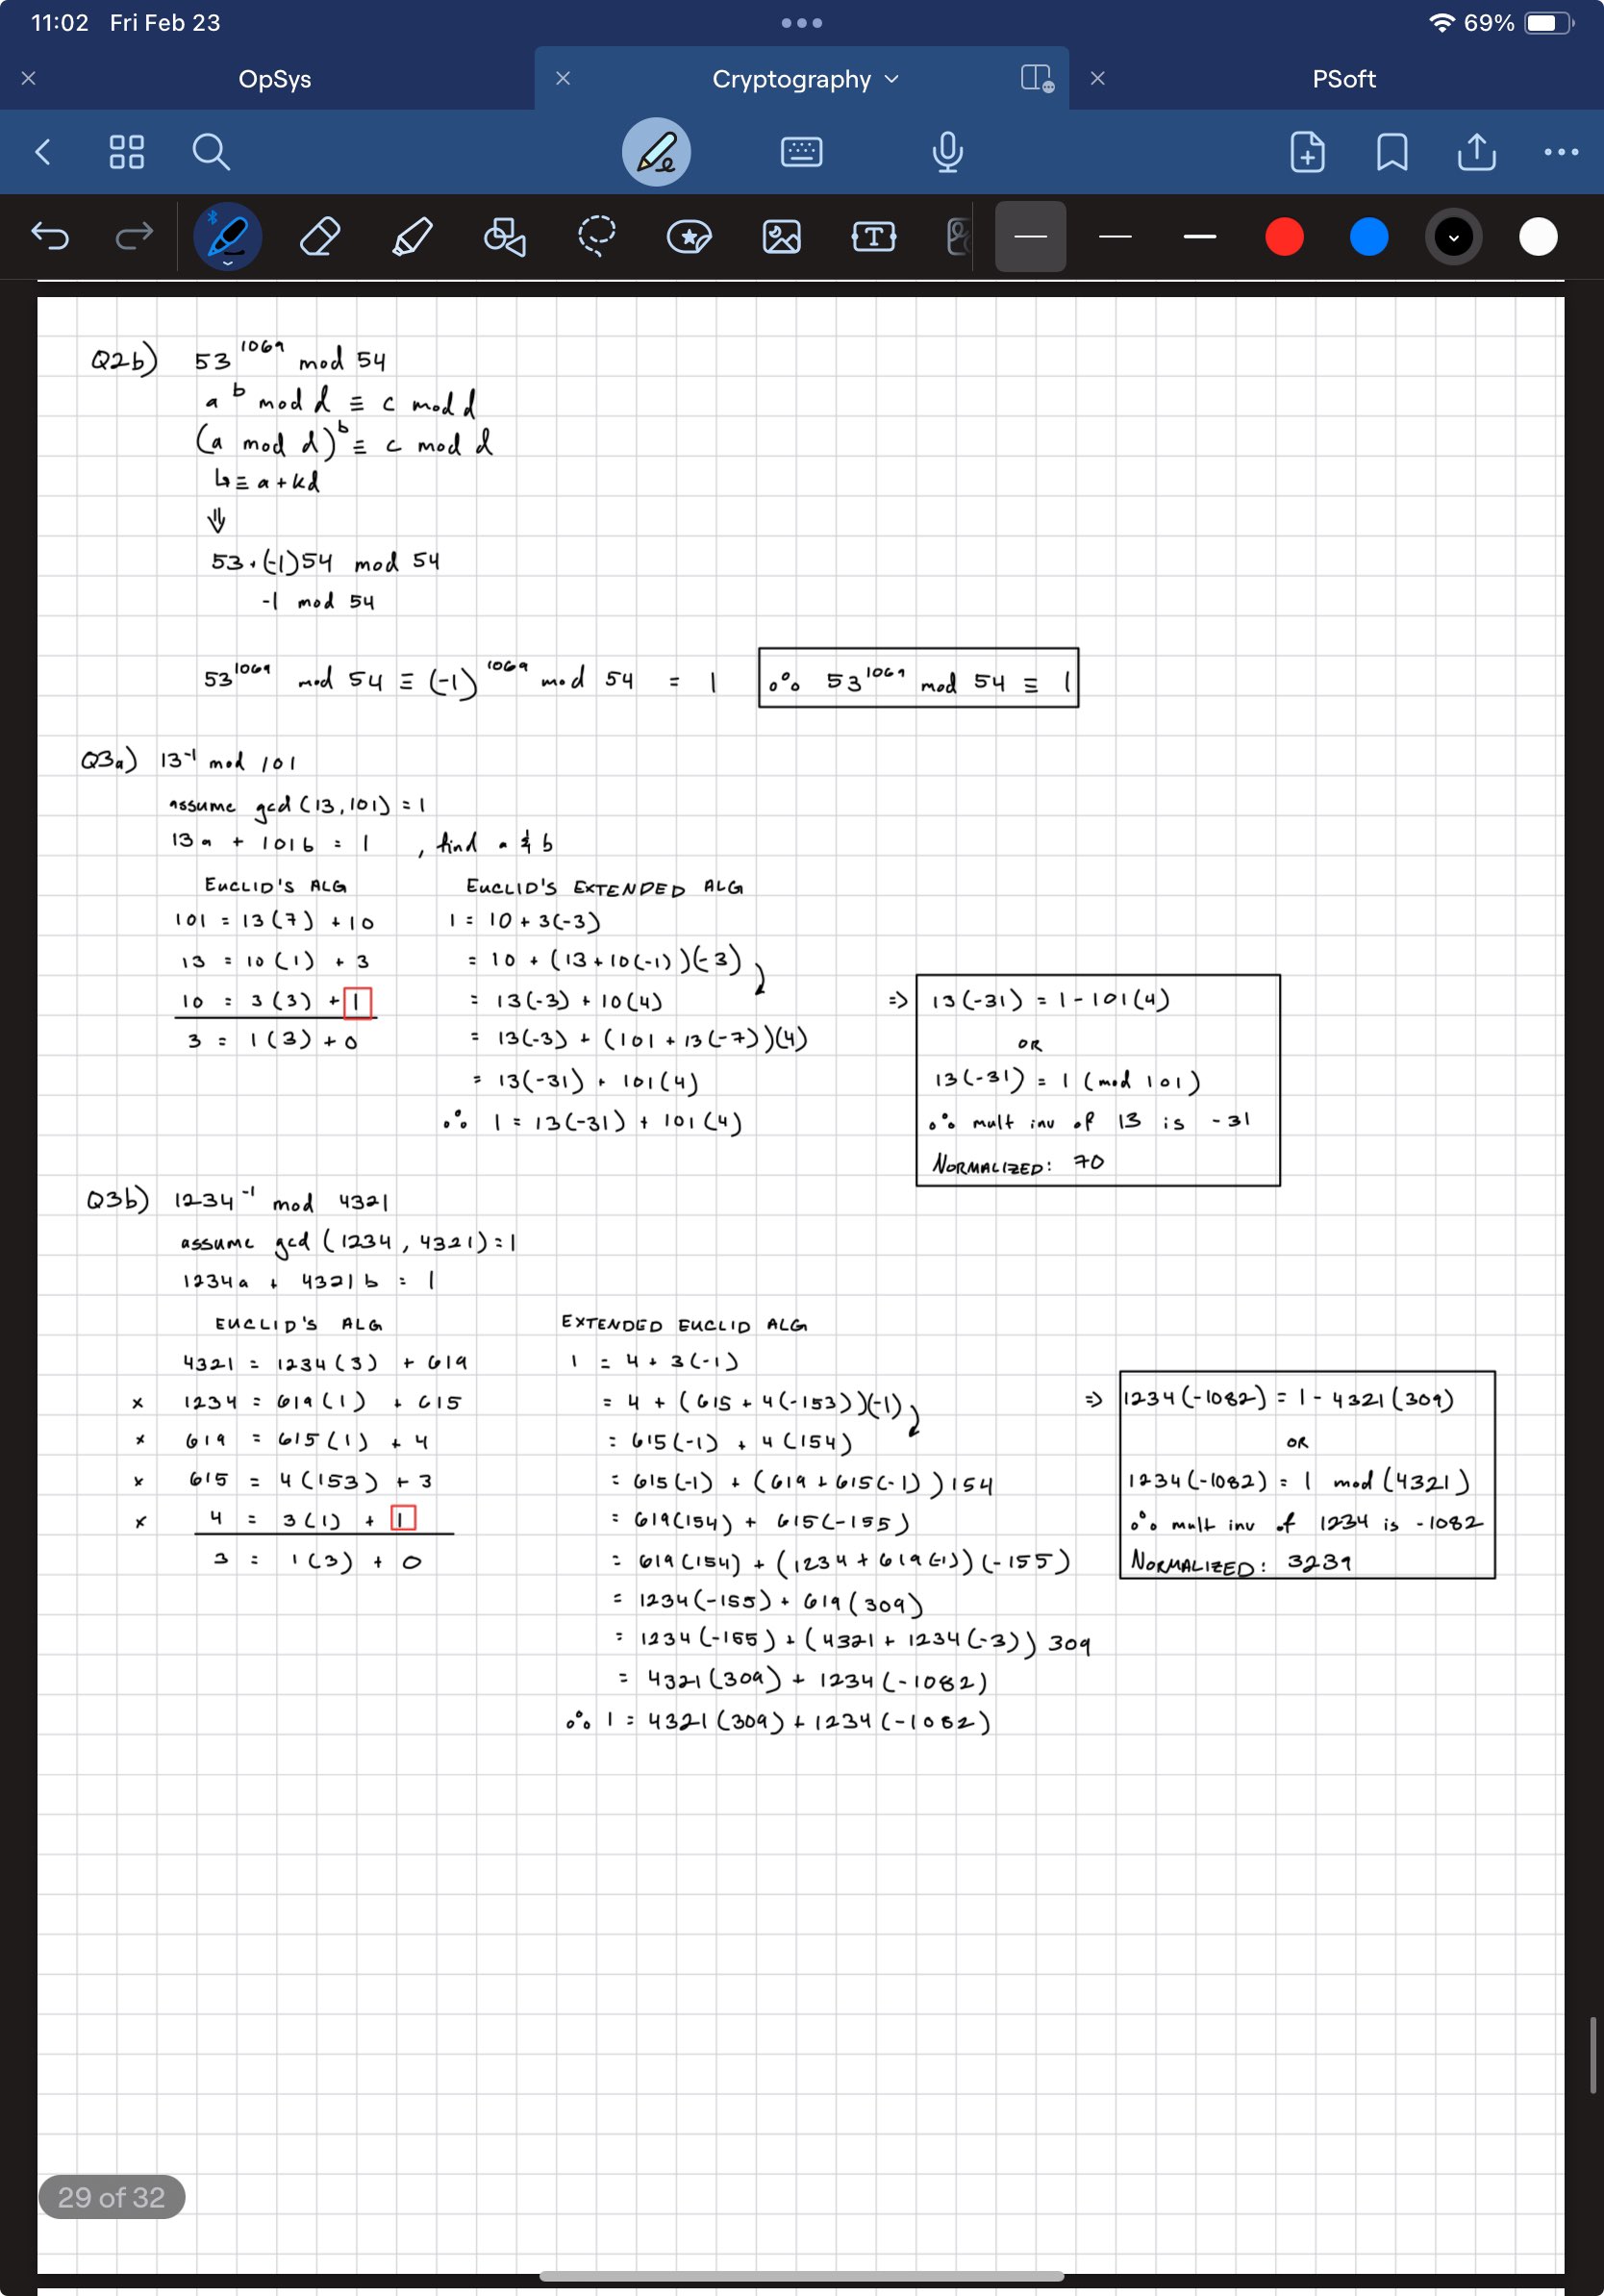 11:02 Fri Feb 23
69%
OpSys
Cryptography
PSoft
Q2b) 53^1069 mod 54
a^b mod d ≡ c mod d
(a mod d)^b ≡ c mod d
↳ ≡ a + kd
⇓
53 + (-1)54 mod 54
-1 mod 54
53^1069 mod 54 ≡ (-1)^1069 mod 54 = 1 ∴ 53^1069 mod 54 ≡ 1
Q3a) 13^-1 mod 101
assume gcd(13, 101) = 1
13a + 101b = 1 , find a & b
EUCLID'S ALG
101 = 13(7) + 10
13 = 10(1) + 3
10 = 3(3) + 1
3 = 1(3) + 0
EUCLID'S EXTENDED ALG
1 = 10 + 3(-3)
= 10 + (13 + 10(-1))(-3)
= 13(-3) + 10(4)
= 13(-3) + (101 + 13(-7))(4)
= 13(-31) + 101(4)
∴ 1 = 13(-31) + 101(4)
⇒ 13(-31) = 1 - 101(4)
OR
13(-31) = 1 (mod 101)
∴ mult inv of 13 is -31
NORMALIZED: 70
Q3b) 1234^-1 mod 4321
assume gcd(1234, 4321) = 1
1234a + 4321b = 1
EUCLID'S ALG
4321 = 1234(3) + 619
x 1234 = 619(1) + 615
x 619 = 615(1) + 4
x 615 = 4(153) + 3
x 4 = 3(1) + 1
3 = 1(3) + 0
EXTENDED EUCLID ALG
1 = 4 + 3(-1)
= 4 + (615 + 4(-153))(-1)
= 615(-1) + 4(154)
= 615(-1) + (619 + 615(-1))154
= 619(154) + 615(-155)
= 619(154) + (1234 + 619(-1))(-155)
= 1234(-155) + 619(309)
= 1234(-155) + (4321 + 1234(-3))309
= 4321(309) + 1234(-1082)
∴ 1 = 4321(309) + 1234(-1082)
⇒ 1234(-1082) = 1 - 4321(309)
OR
1234(-1082) = 1 mod(4321)
∴ mult inv of 1234 is -1082
NORMALIZED: 3239
29 of 32